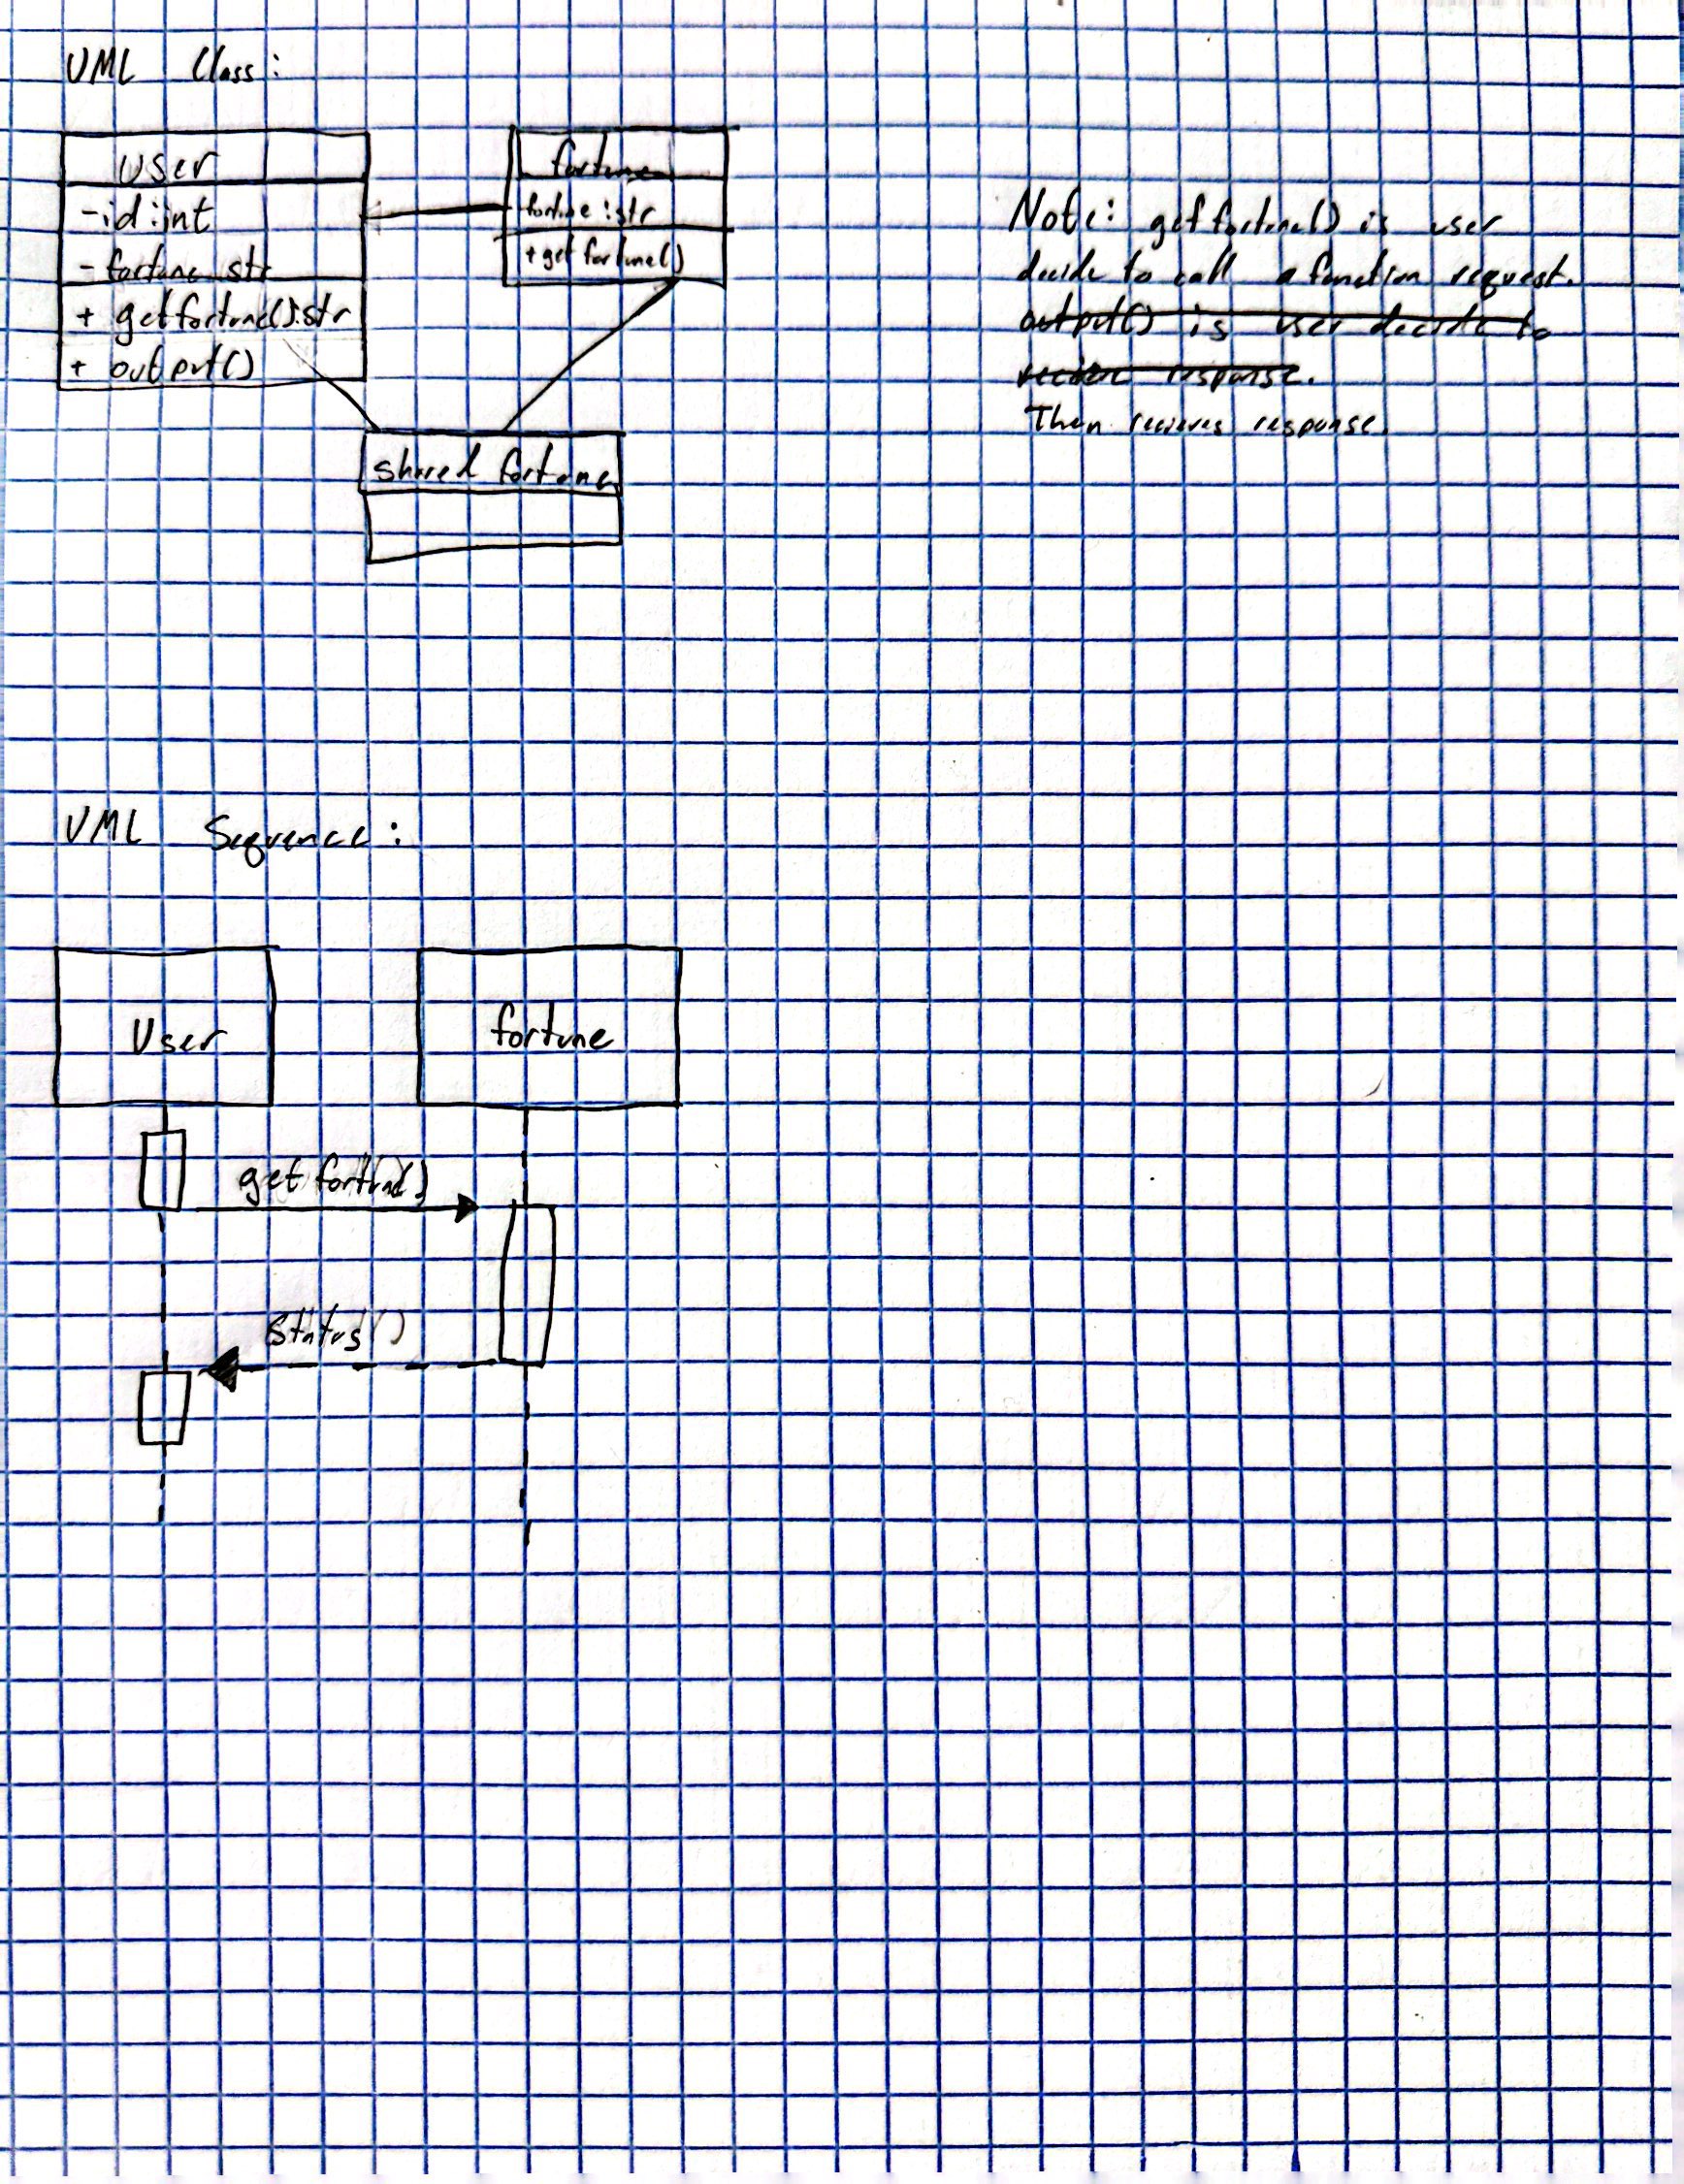 UML Class:
User
-id:int
- fortune str
+ getfortune():str
+ output()
fortune
fortune:str
+get fortune()
shared fortune
Note: getfortune() is user
decide to call a function request.
output() is user decide to
recieve response.
Then recieves response.
UML Sequence:
User
fortune
get fortune()
Status()